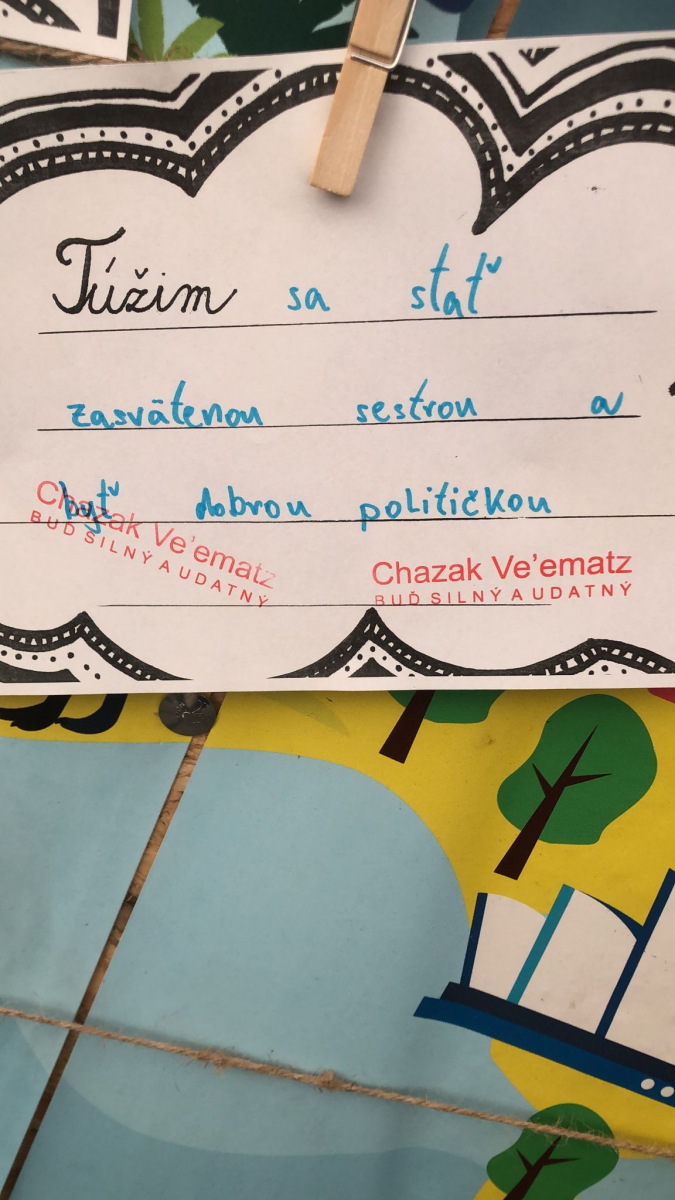 Túžim sa stať
zasvätenou sestrou a
byť dobrou političkou
Chazak Ve'ematz
BUĎ SILNÝ A UDATNÝ
Chazak Ve'ematz
BUĎ SILNÝ A UDATNÝ